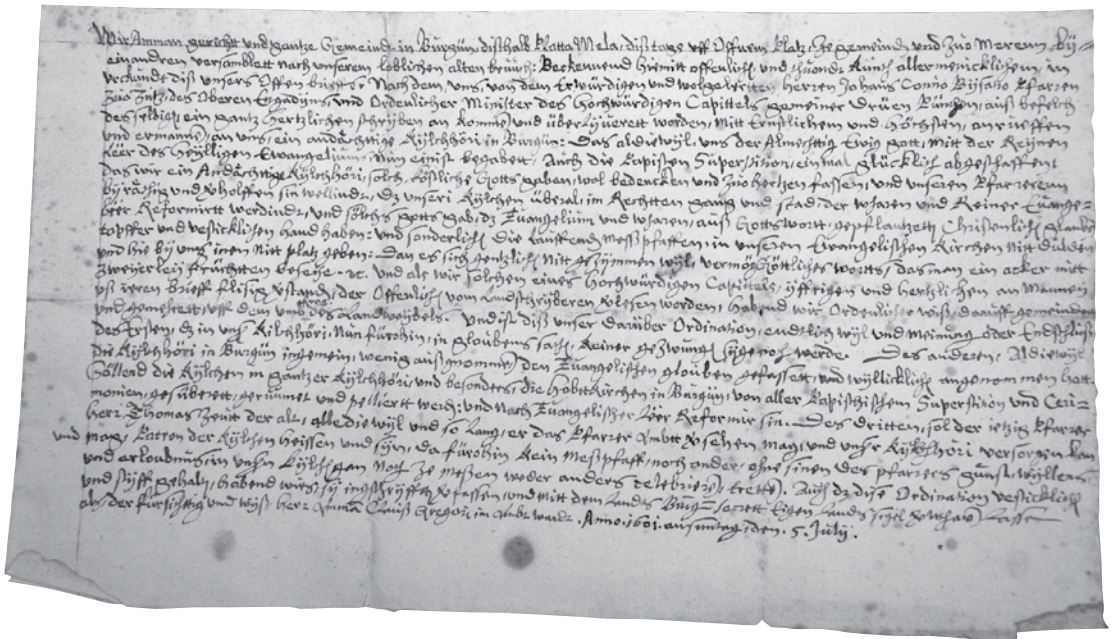 Wir Amman gericht und gantze Gemeind in Burgün, disthalb Platta Mela, diß tags uff Offnem Platz, Ze gemeind und Zuo Merenn, by=
einandren versamblett nach unserem loblichen alten bruuch: Bekennend hiemitt offenlich, und thuonds kundt allermencklichen, in
Nach dem, uns, von dem Erwürdigen und wolgelertten Herren Johans Conno Bysatio Pfarren
Zuo Zutz, des Oberen Engadyns, und Ordenlicher Minister des Hochwürdigen Capittels gemeiner Dryen Pündten, auß befelch
des selbigen, ein gantz hertzlichen schryben an komme, und überlyverett worden, mitt Ernstlichem und Höchsten, anrueffen
und ermanne, an uns, ein andächtige Kylchhöri in Burgün: Das aldiewyl, uns der Almechtig Ewig gott, mitt der Reynen
Leer des Heylligen Ewangeliums, Nun einist begabett, Auch die Papisten Superstition, einmal glücklich abgeschaffent
Das wir ein Andächtige Kylchhöri, solch, köstliche Gotts gaben, wol bedencken und Zuo hertzen fassen, und unseren Pfarreren
byräthig und bholffen sin wellind, dz unseri Kylchen überal, im Rechtten gang und stad, der wharen und Reiner Euange=
leer Reformirtt werdind, und solchs gotts gab, dz Euangelium und wharen, auß Gottswortt, gepflantzett Christenlich glauben
tapffer und vesticklichen hand haben: und sonderlich die lauffend Messpfaffen, in unseren Ewangelischen Kirchen nitt dulden
und hie by uns inen nitt platz geben: Dan es sich gentzlich nitt gezymmen wyl, vermög Göttliches wortts, das man ein acker mitt
zweyerley früchtten beseye. etc. und als wir solchen eines Hochwürdigen Capittels, yffrigen und hertzlichen an Mannen
der Offenlich vom Landtschryberen verlesen worden, Habend wir Ordenlicher wiß, darüff gemeindet
und gemehrett, uff dem umb fragen des Landtweybels. Und ist diß unser darüber Ordination, endtlich wyl und meinung oder Endschluß
des Ersten, dz in unser Kilchhöri, Nun fürohin, in gloubens sach, Keiner gezwungen sye noch werde. Des anderen, Aldiewyl
die Kylchhöri in Burgün ingemein, wenig außgnommen, den Euangelischen glouben gefassett, und wyllicklich angenommen hatt
Söllend die Kylchen in gantzer Kylchhöri, und besonders, die Hobtkirchen in Burgün, von aller Papistischem Superstition und Ceri=
monien, gesüberett, gerumet und werd: und Nach Euangelischer Leer Reformir sin. Des dritten, sol der ietzig Pfarrer
herr Thomas Zeutt der alt, alle die wyl und so lang, er das Pfarrer Ambtt versehen mag, und unser Kylchhöri versorgen kan
und mag, Patron der Kylchen heissen und syn, da fürohin kein Messpfaff, noch ander, ohne sinen des pfarrers gunst, wyllens
und erloubnuß, in unsern Kylchen gan Noch Ze Messen weder anders Auch dz dise Ordination vesticklich
und styff gehalten, habend wirs, in gschryfft verfassen, und mitt dem Landts secrett Eigen Landts sigel verwharen Lassen
als der fürsichtig und wyß herr Amma Clauß Gregori im Anno. 1601. am suntag, den. 5. July.